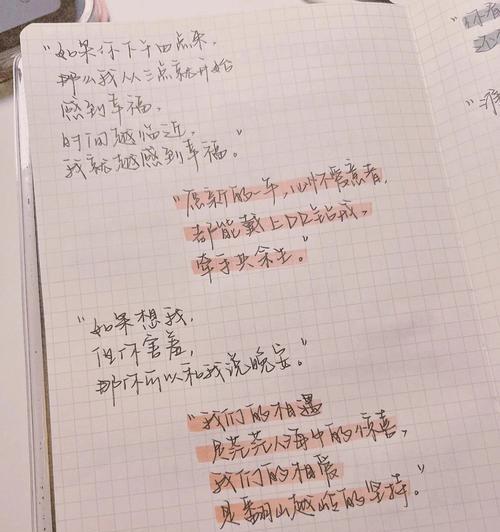 "如果你下午四点来，
那么我从三点就开始
感到幸福，
时间越临近，
我就越感到幸福。"
"愿新的一年，心怀爱意者，
都能戴上DR钻戒，
牵手共余生。"
"如果想我，
但你害羞，
那你可以和我说晚安。"
"我们的相遇
是茫茫人海中的惊喜，
我们的相爱
是翻山越岭的坚持。"